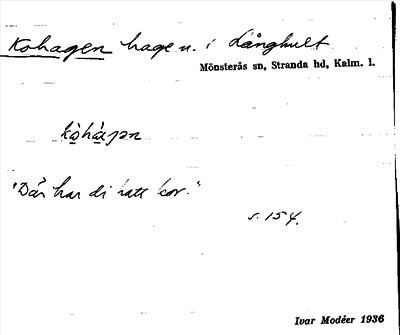 Kohagen hage n. i Långhult
Mönsterås sn, Stranda hd, Kalm. l.
kòhàgən
"Där har di hatt kor."
s. 154.
Ivar Modéer 1936